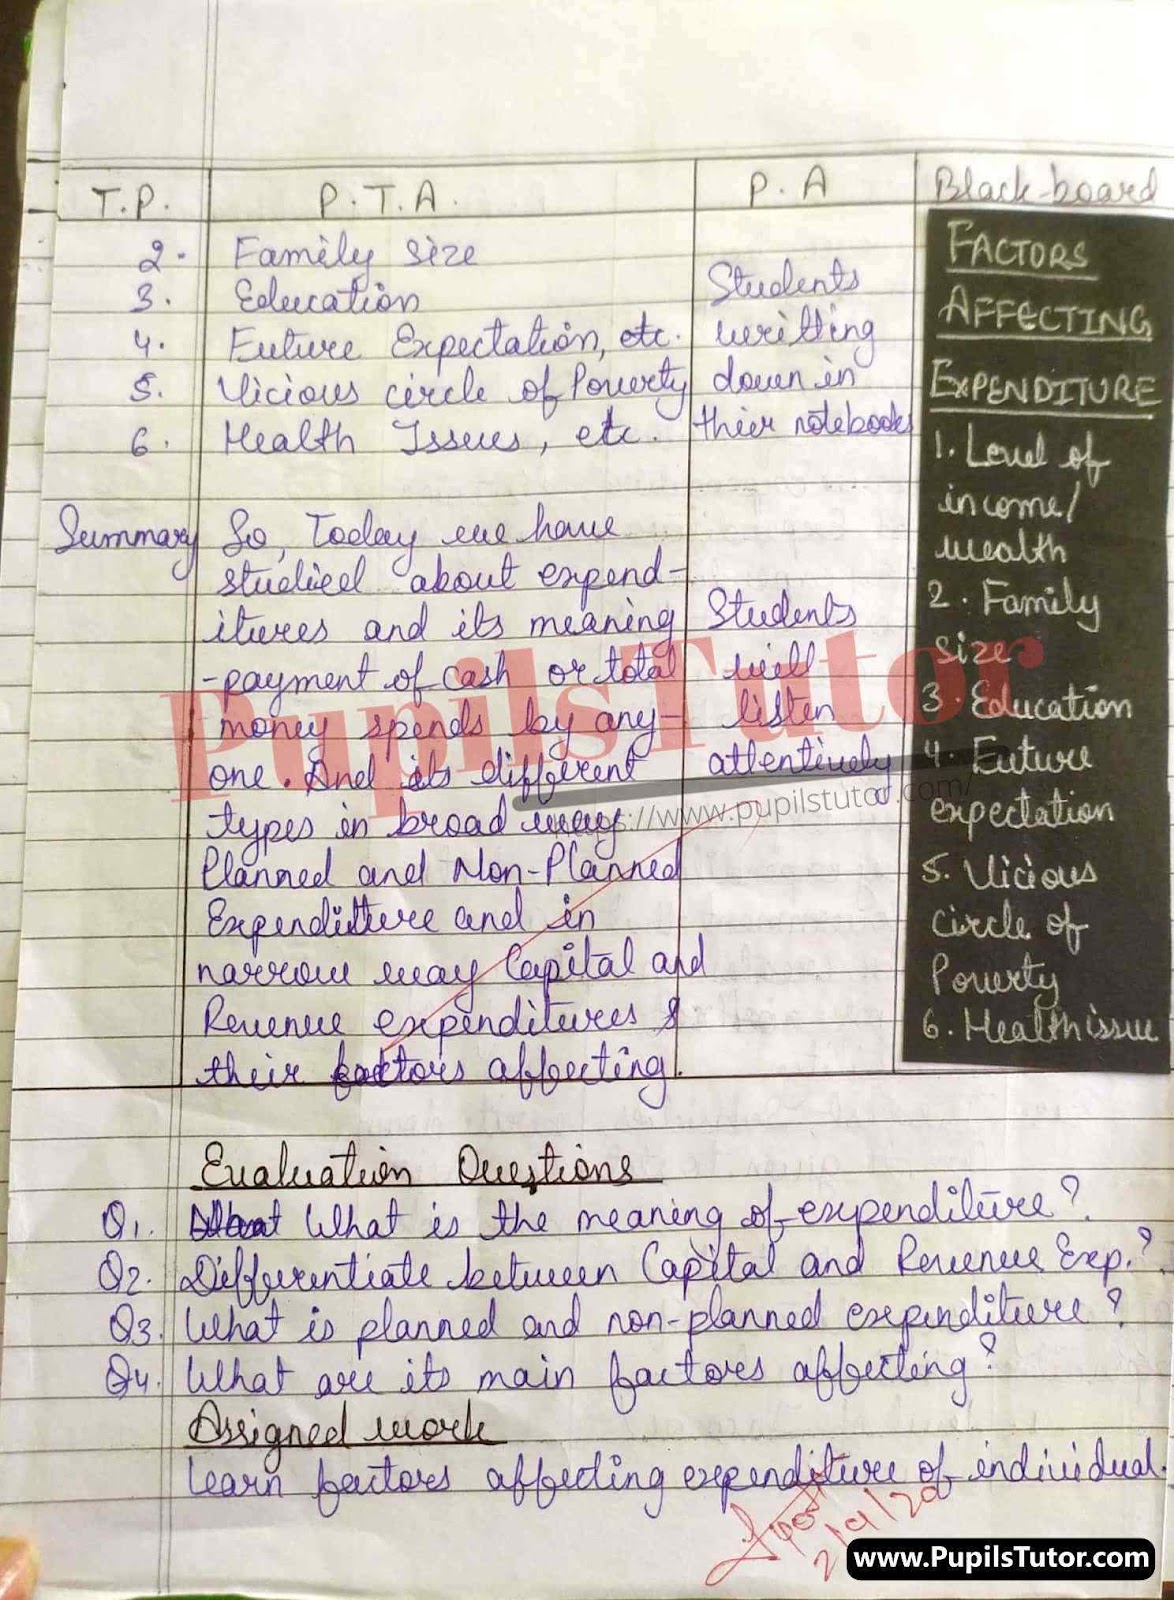 T.P. P.T.A. P.A Black-board
2. Family size
3. Education
4. Future Expectation, etc.
5. Vicious circle of Poverty
6. Health Issues, etc.
Students
writting
down in
their notebooks
Summary So, Today we have
studied about expend-
itures and its meaning
-payment of cash or total
money spends by any-
one. And its different
types in broad way
Planned and Non-Planned
Expenditure and in
narrow way Capital and
Revenue expenditures &
their factors affecting.
Students
will
listen
attentively
FACTORS
AFFECTING
EXPENDITURE
1. Level of
income/
wealth
2. Family
size
3. Education
4. Future
expectation
5. Vicious
circle of
Poverty
6. Health issue
PupilsTutor
https://www.pupilstutor.com/
Evaluation Questions
Q1. What is the meaning of expenditure?
Q2. Differentiate between Capital and Revenue Exp.?
Q3. What is planned and non-planned expenditure?
Q4. What are its main factors affecting?
Assigned work
Learn factors affecting expenditure of individual.
www.PupilsTutor.com